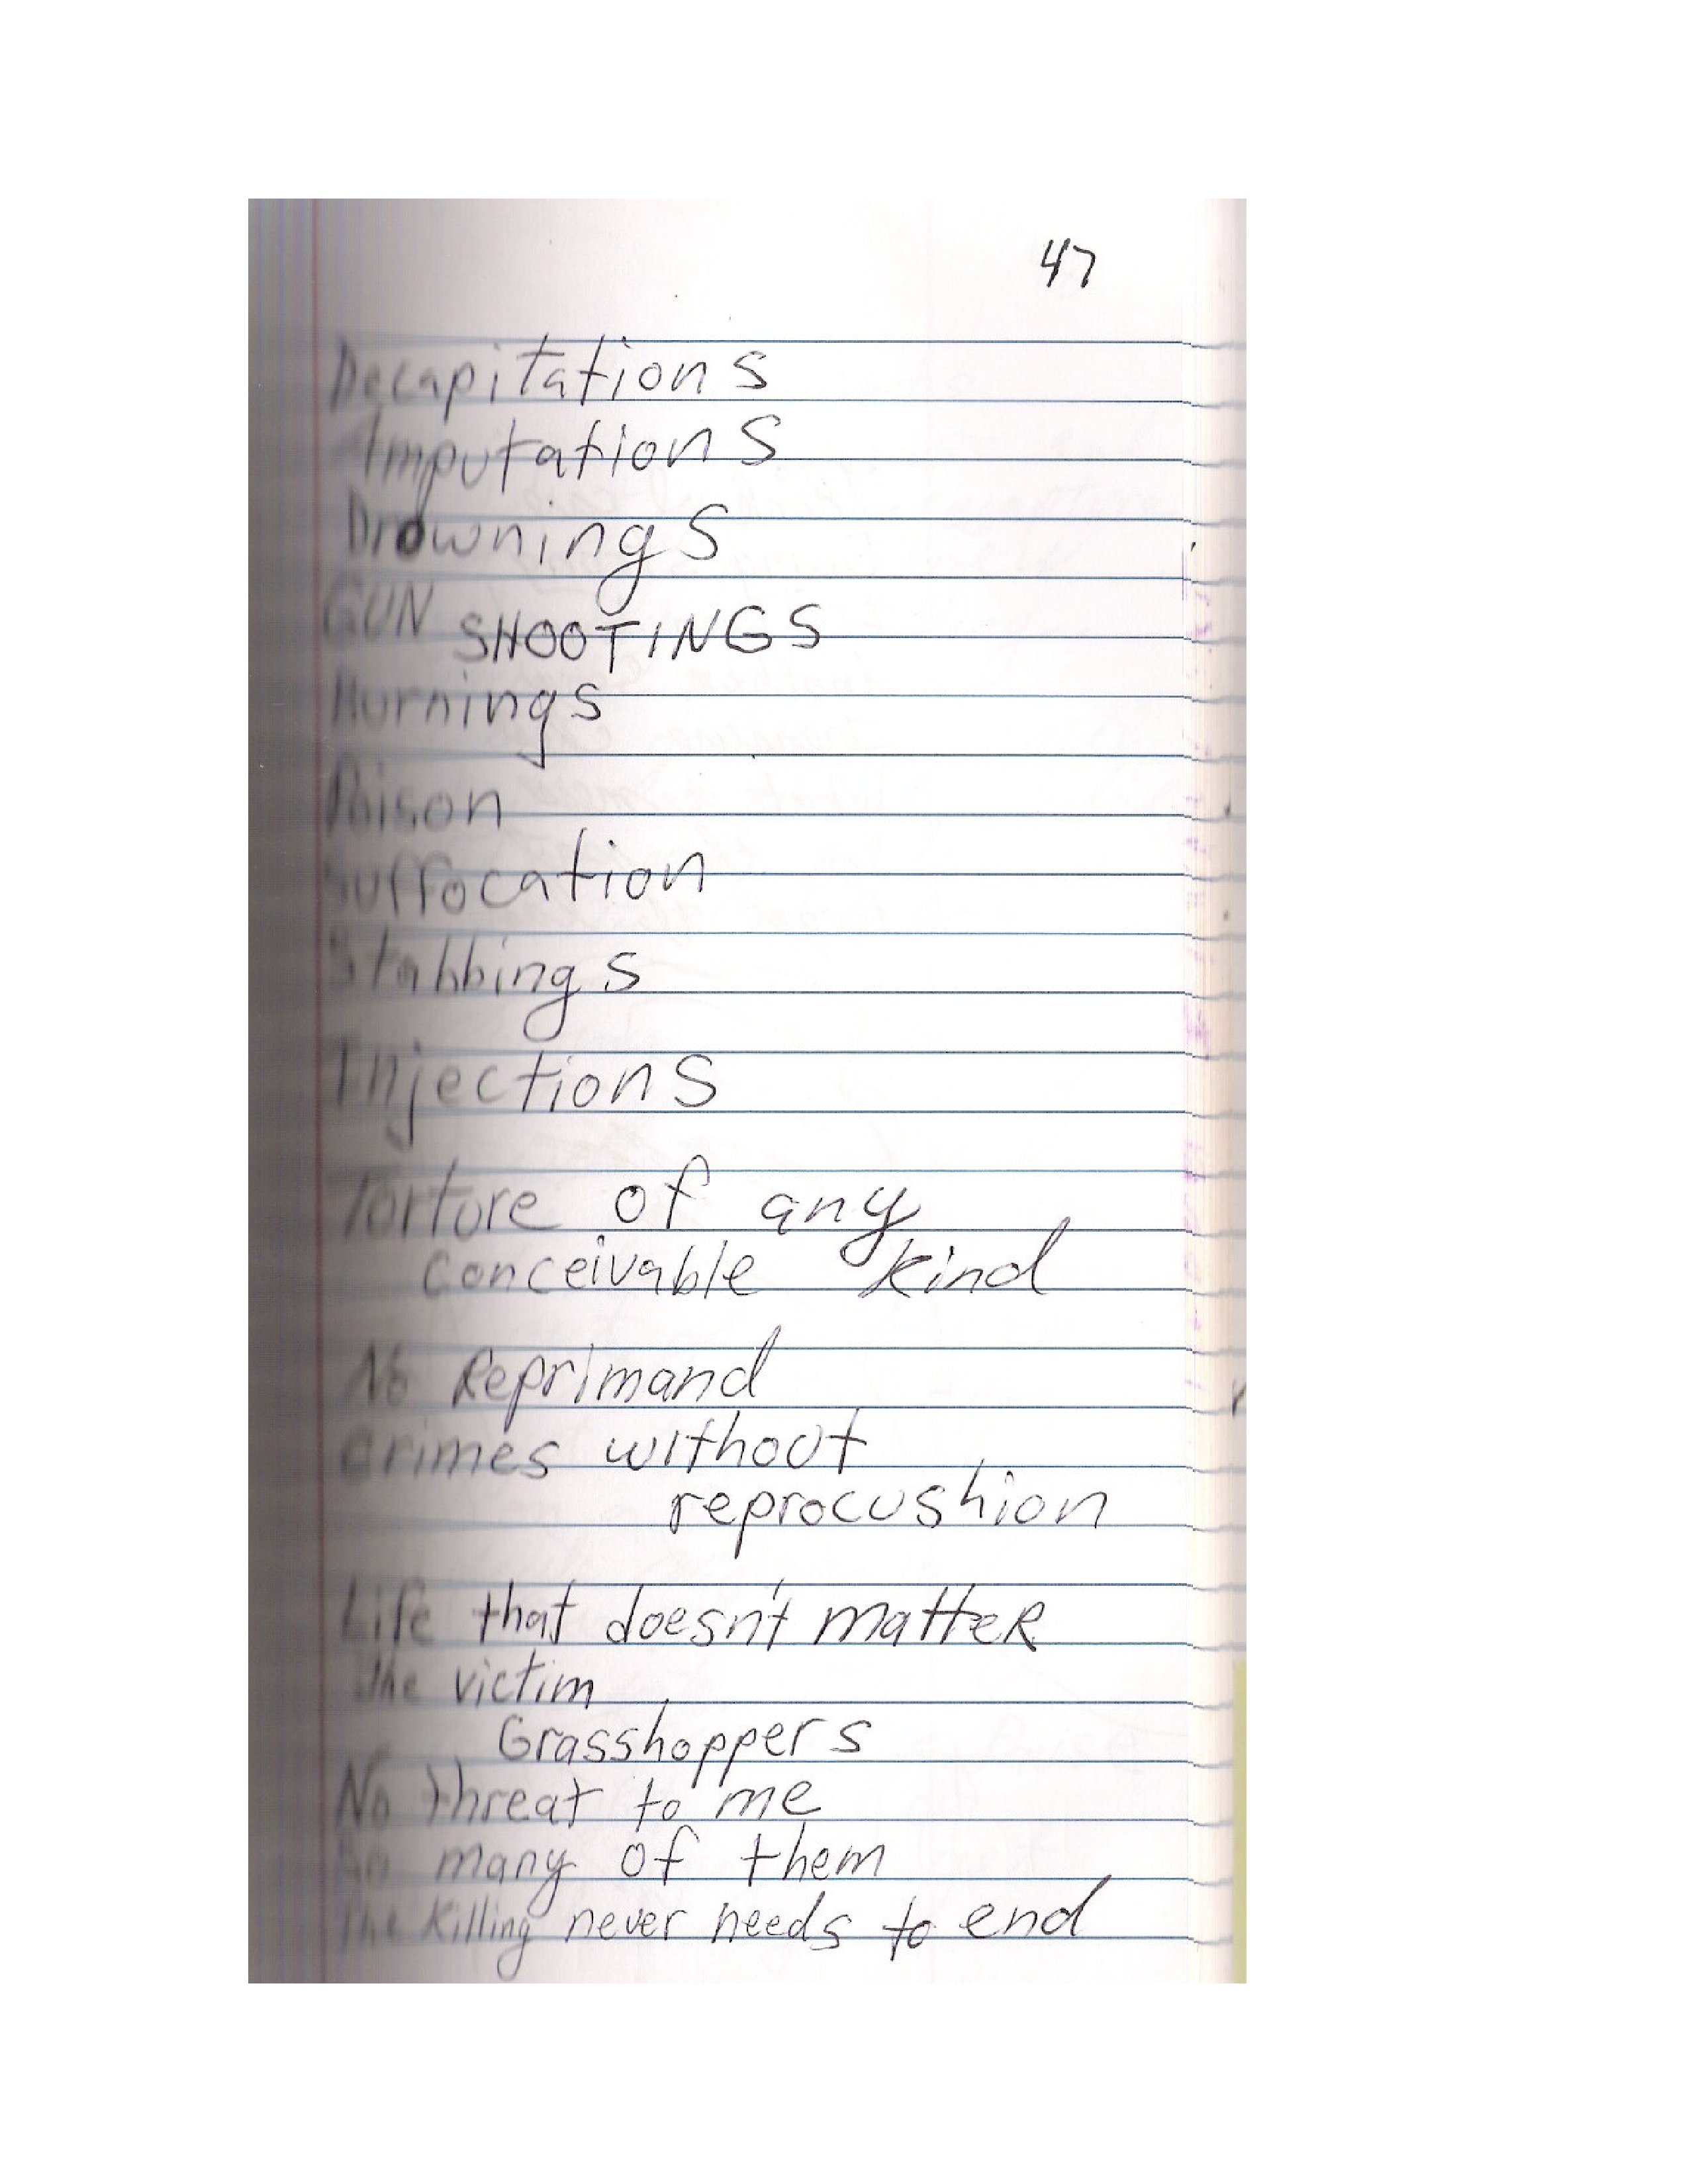 47
Decapitations
Amputations
Drownings
GUN SHOOTINGS
Burnings
Poison
Suffocation
Stabbings
Injections
Torture of any
conceivable kind
No Reprimand
crimes without
reprocushion
Life that doesn't matteR
The victim
Grasshoppers
No threat to me
So many of them
The Killing never needs to end